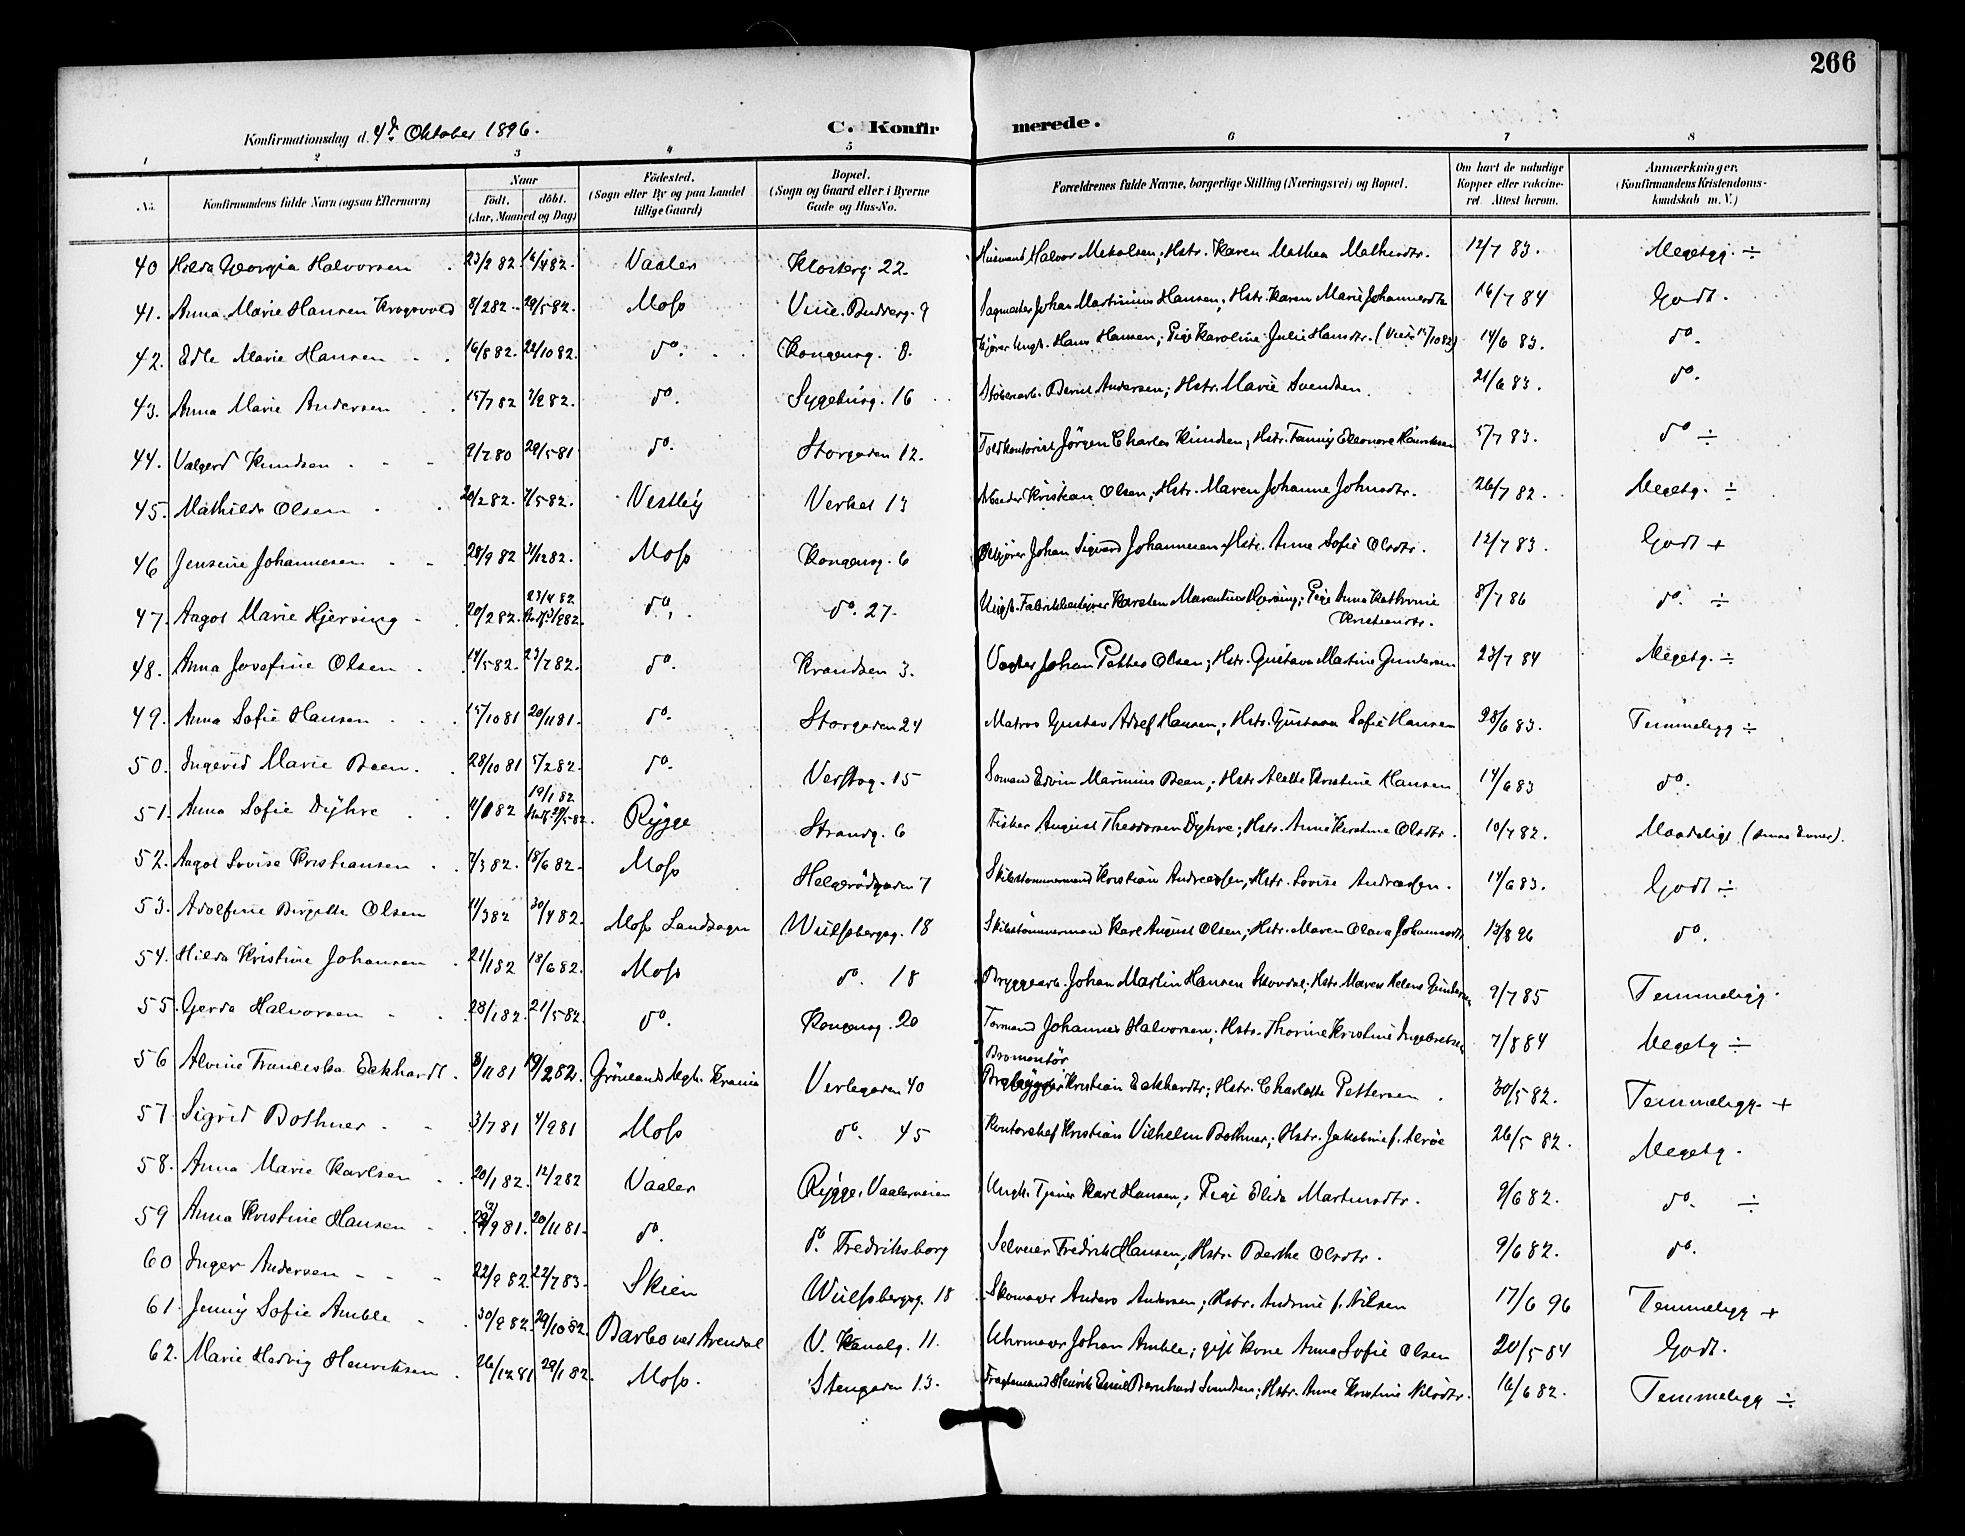 266
Konfirmationsdag d. 4de Oktober 1896.
C. Konfirmerede.
1 2 3 4 5 6 7 8
No. Konfirmandens fulde Navn (ogsaa Efternavn) Naar født. døbt. (Aar, Maaned og Dag) Fødested. (Sogn eller By og paa Landet tillige Gaard) Bopæl. (Sogn og Gaard eller i Byerne Gade og Hus-No. Forældrenes fulde Navne, borgerlige Stilling (Næringsvei) og Bopæl. Om havt de naturlige Kopper eller vakcineret. Attest herom. Anmærkninger. (Konfirmandens Kristendomskundskab m. V.)
40 Hilda Georgia Halvorsen 23/2 82. 16/4 82. Vaaler Klosterg. 22. Husmand Halvor Mikalsen; Hstr. Karen Mathea Mathisdtr. 12/7 83. Megetgg. ÷
41. Anna Marie Hansen Krogsvold 8/2 82. 29/5 82. Moss 9 Sagmester Johan Martinius Hansen; Hstr. Karen Marie Johannesdtr 16/7 84 Godt.
42. Edle Marie Hansen 16/8 82. 22/10 82. do. Kongensg. 8. Kjører Ungk. Hans Hansen; Pige Karoline Julie Hansdtr. (Viet 15/10 82) 14/6 83. do.
43. Anna Marie Andersen 15/7 82 3/9 82. do. Sygehusg. 16 Bernt Andersen; Hstr. Marie Svendsen 21/6 83. do.
44. Valgerd Knudsen 9/7 80 29/5 81 do. Storgaden 12. Toldkontorist Jørgen Charles Knudsen; Hstr. Fanny Eleonore Henriksen 5/7 83. do ÷
45. Mathilde Olsen 20/2 82. 7/5 82. Vestby Verket 13 Arbeider Kristian Olsen; Hstr. Maren Johanne Johnsdtr. 26/7 82. Megetg. ÷
46 Jensine Johannesen 28/9 82 31/12 82. Moss Kongensg. 6 Johan Sigvard Johannesen; Hstr. Anne Sofie Olsdtr. 12/7 83. Godt +
47. Aagot Marie Hjersing 20/2 82. 23/4 82 do. do. 27. Ungk. Fabrikbestyrer Karsten Marentius Hjersing; Pige Anna Kathrine Kristensdtr. 8/7 86 do. ÷
48. Anna Josefine Olsen 14/5 82. 23/7 82. do. Krandsen 3. Vægter Johan Petter Olsen; Hstr. Gustava Martine Gundersen 23/7 84 Megetg. ÷
49. Anna Sofie Hansen 15/10 81 20/11 81. do. Storgaden 24 Matros Gustav Adolf Hansen; Hstr. Gustava Sofie Hansen 28/6 83. Temmeligg ÷
50. Ingerid Marie Been. 28/10 81 5/2 82. do. 15 Sømand Edvin Marinius Been; Hstr. Alette Kristine Hansen 14/6 83 do.
51. Anna Sofie Dyhre 4/1 82 19/1 82 29/5 82. Rygge Strandg. 6 Fisker August Theodorsen Dyhre; Hstr. Anne Kirstine Olsdtr. 10/7 82. Maadeligt (smaa Evner).
52. Aagot Lovise Kristiansen 7/3 82. 18/6 82. Moss Helgerødgaden 7 Skibstømmermand Kristian Andreassen; Hstr. Lovise Andreassen. 14/6 83. Godt ÷
53. Adolfine Birgitte Olsen 11/3 82 30/4 82. Moss Landsogn Wulfsbergsg. 18 Skibstømmermand Karl August Olsen; Hstr. Maren Olava Johannesdtr 13/8 96 do.
54. Hilda Kristine Johansen 21/1 82 18/6 82. Moss do. 18 Bryggearb. Johan Martin Hansen Skovdal; Hstr. Maren Helene Gundersen 9/7 85 Temmeligg.
55. Gerda Halvorsen 28/1 82. 21/5 82. do. Kongensg. 20 Tømmermand Johannes Halvorsen; Hstr. Thorine Kristine Ingebretsen 7/8 84 Megetg ÷
56 Alvine Franciska Eckhardt. 8/11 81 19/2 82. Grønlands Mgh. Krania Verlegaden 40 Kristian Eckhardt; Hstr. Charlotte Pettersen 30/5 82. Temmeligg. +
57. Sigrid Bothner 3/7 81 4/9 81 Moss do. 45 Kontorchef Kristian Vilhelm Bothner; Hstr. Jakobine f. Alrøe 26/5 82. Megetg.
58. Anna Marie Karlsen 20/1 82. 12/2 82 Vaaler Rygge, Vaalerveien Ungk. Tjener Karl Hansen; Pige Elida Martinsdtr. 9/6 82. do. ÷
59 Anna Kristine Hansen 22/9 81. 20/11 81. do. do. Fredriksborg Selveier Fredrik Hansen; Hstr. Berthe Olsdtr. 9/6 82. do.
60 Inger Andersen 22/9 82. 22/7 83. Skien Wulfsbergsg. 18 Skomager Anders Andersen; Hstr. Andrine f. Nilsen 17/6 96 Temmeligg +
61. Jenny Sofie Amble 30/9 82. 29/10 82. Barbo ved Arendal V. Kanalg. 11. Uhrmager Johan Amble; gift Kone Anna Sofie Olsen 20/5 84 Godt.
62. Marie Hedvig Henriksen 26/12 81 29/1 82. Moss. Stengaden 13. Fragtemand Henrik Emil Bernhard Svendsen; Hstr. Anne Kristine Nilsdtr. 16/6 82. Temmeligg ÷